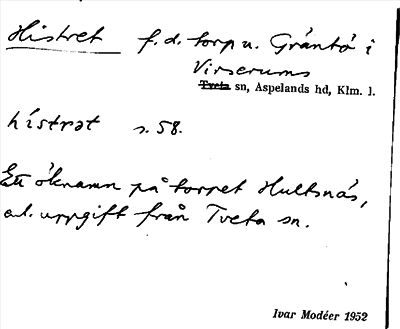 Histret f.d. torp u. Gråntö i
Virserums
Tveta sn, Aspelands hd, Klm. l.
hístrət s. 58.
Ett öknamn på torpet Hultsnäs,
enl. uppgift från Tveta sn.
Ivar Modéer 1952